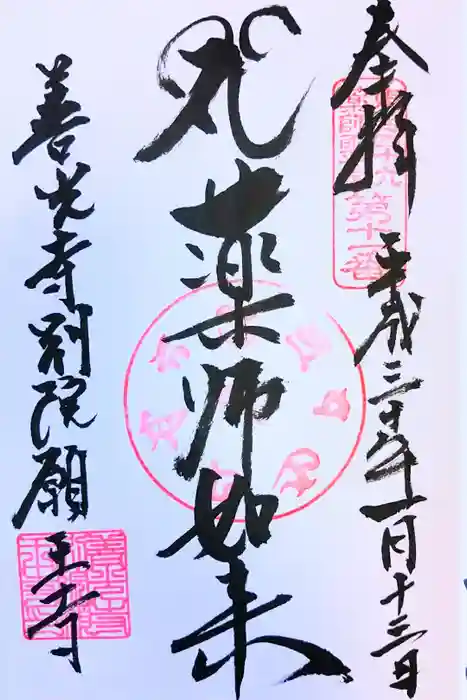 奉拝
平成三十年一月十三日
第十一番
薬師如来
善光寺別院願王寺